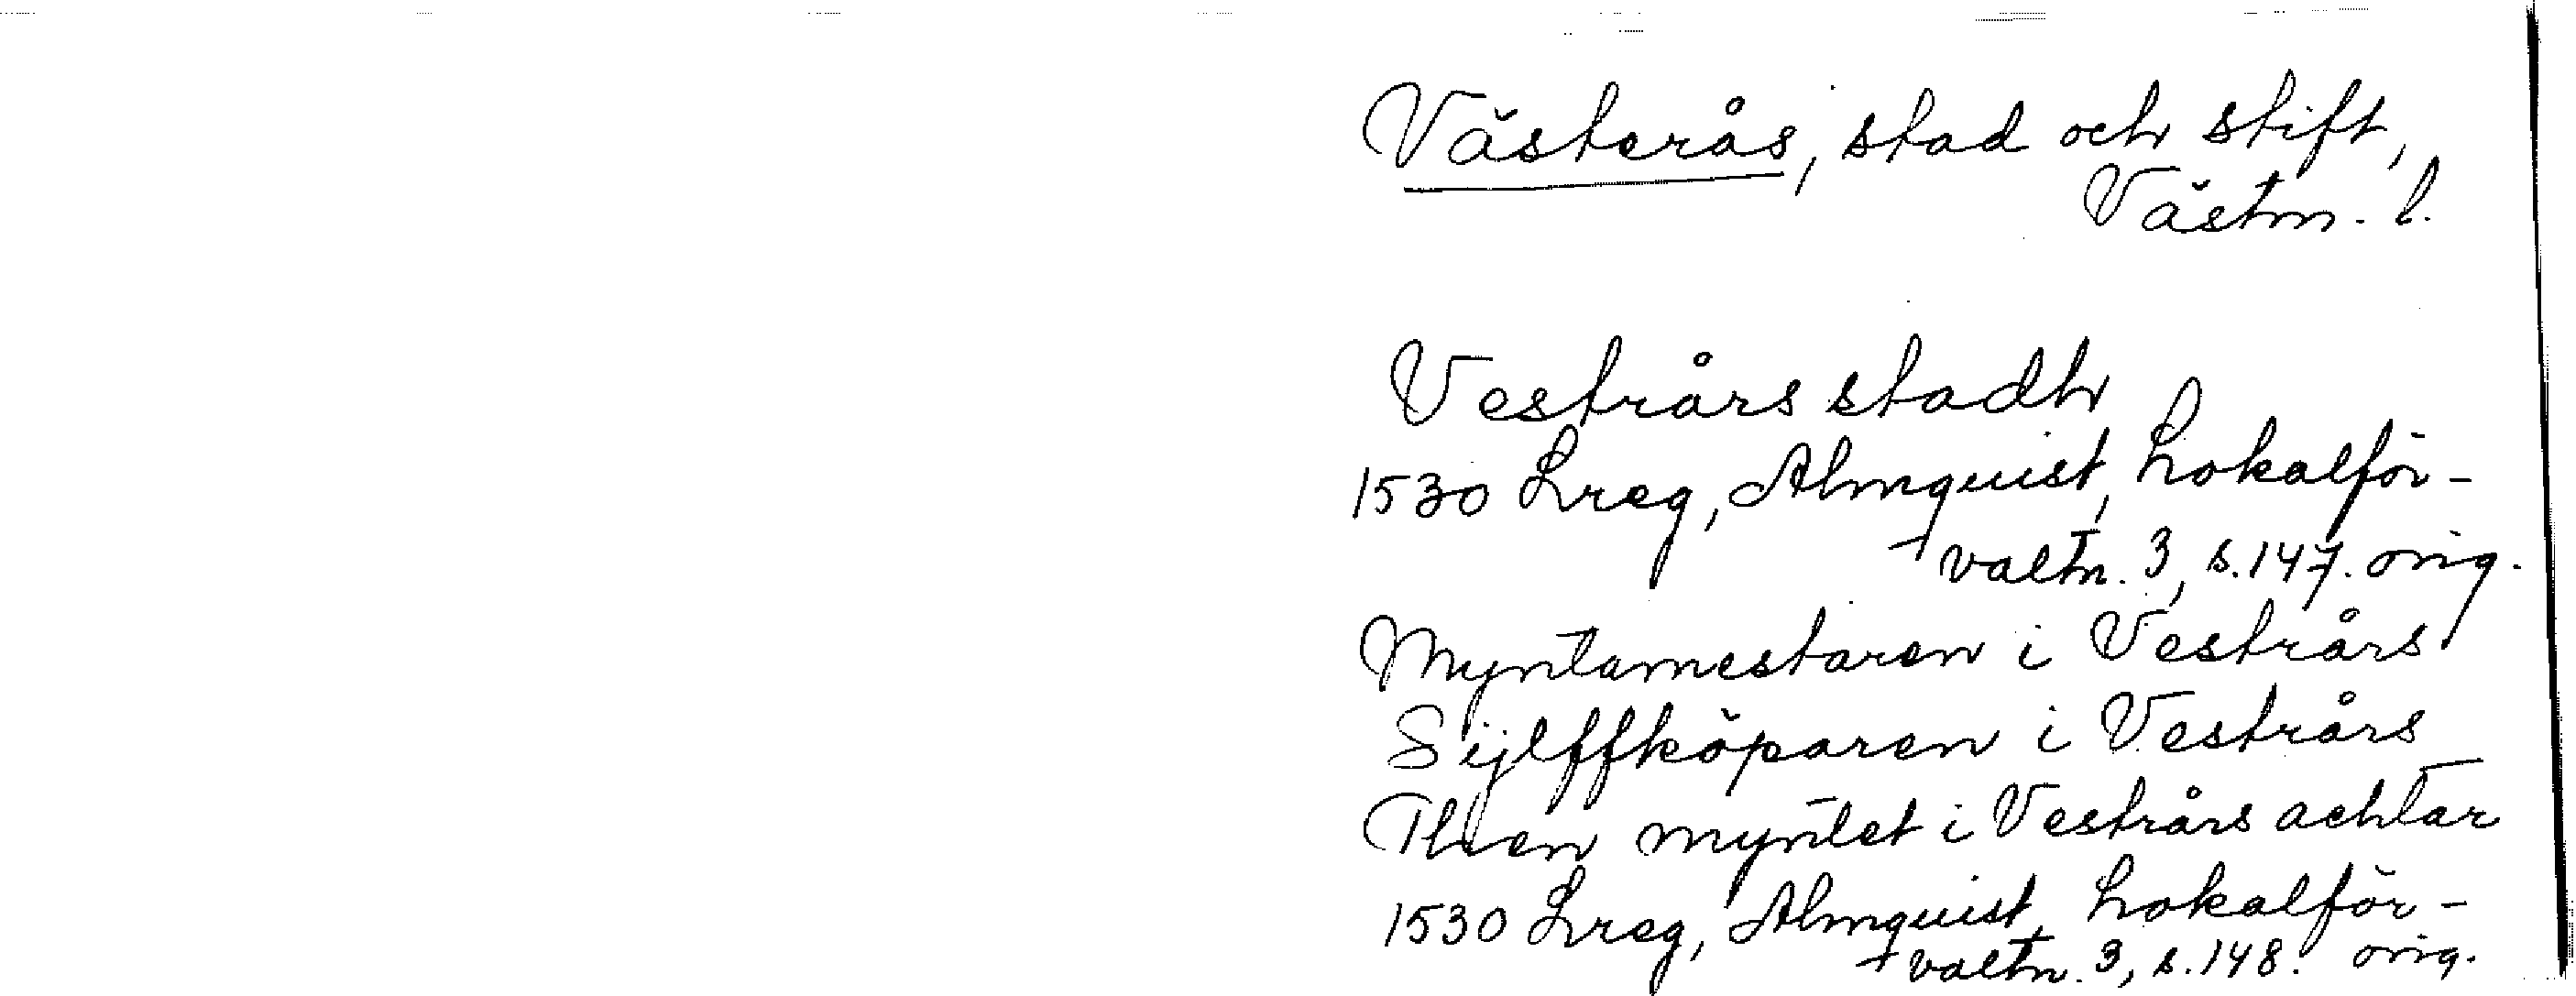 Västerås, stad och stift,
Västm. l.
Vestrårs stadh
1530 Lreg, Almquist, Lokalför-
valtn. 3, s. 147. orig.
Myntamestaren i Vestrårs
Sijlffköparen i Vestrårs
Then myntet i Vestrårs achtar
1530 Lreg, Almquist, Lokalför-
valtn. 3, s. 148. orig.